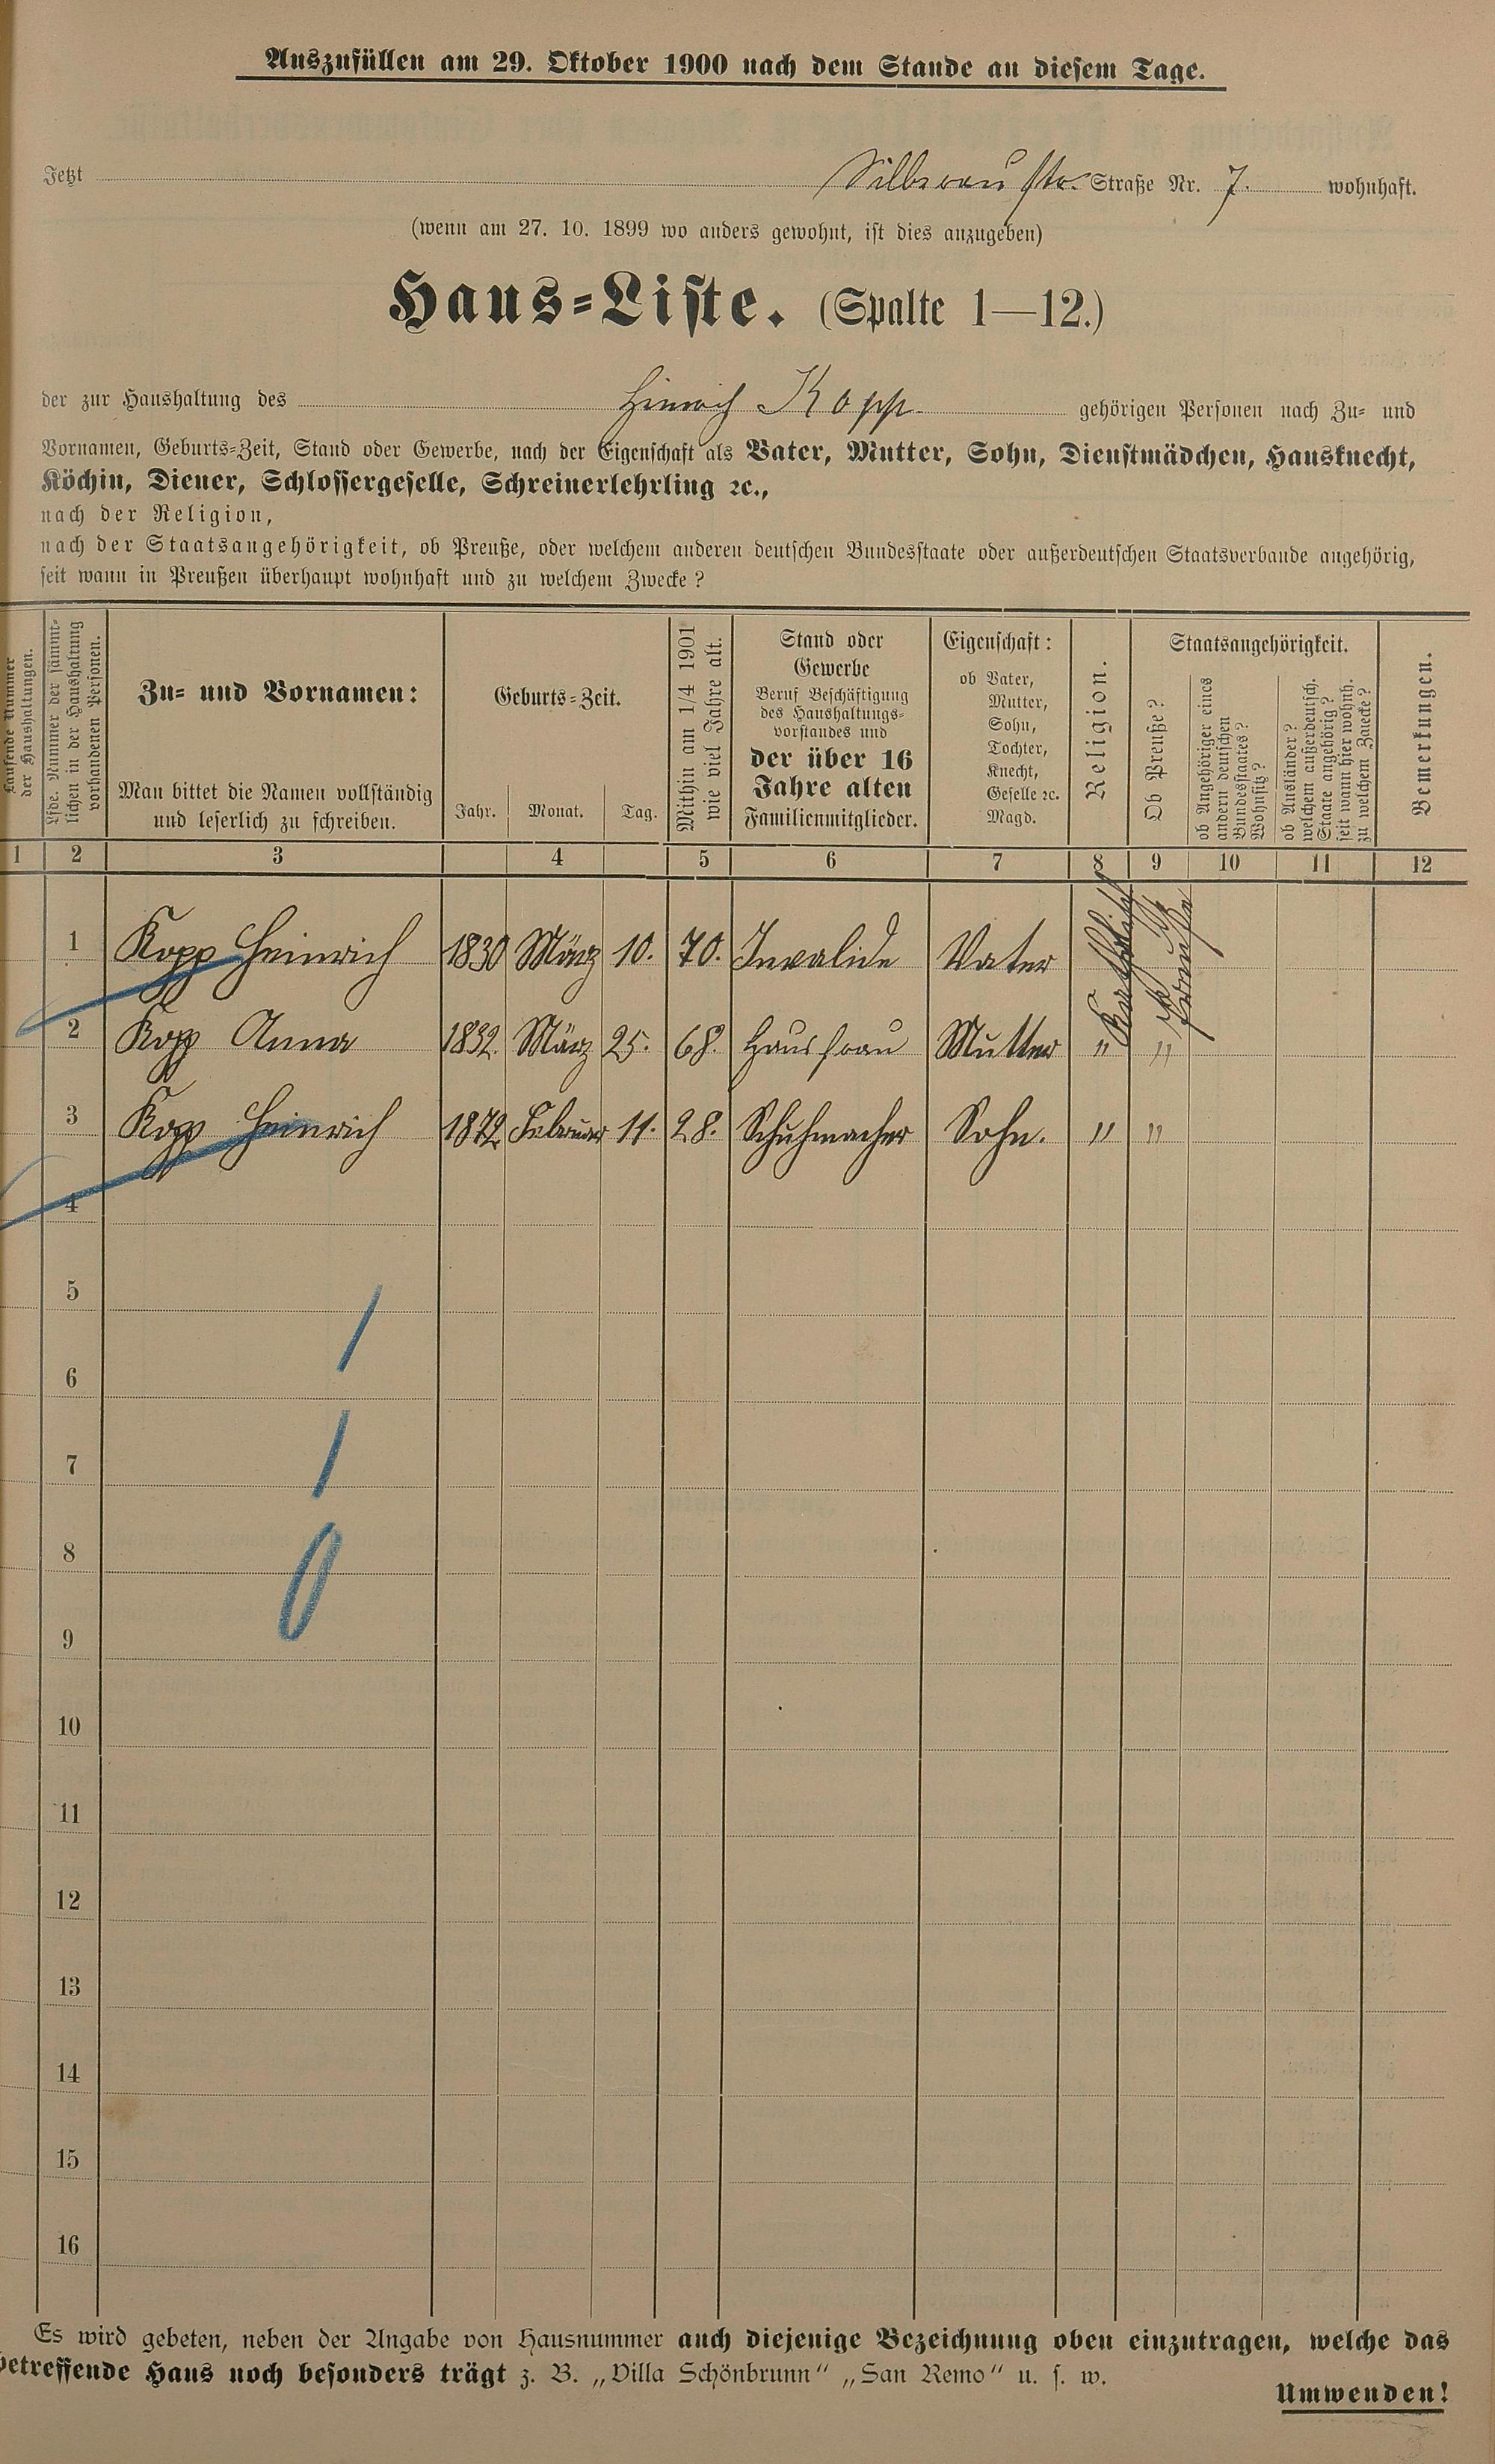 Auszufüllen am 29. Oktober 1900 nach dem Stande an diesem Tage.
Jetzt Silberaustr. Straße Nr. 7. wohnhaft.
(wenn am 27. 10. 1899 wo anders gewohnt, ist dies anzugeben)
Haus-Liste. (Spalte 1—12.)
der zur Haushaltung des Hinrich Kopp gehörigen Personen nach Zu- und
Vornamen, Geburts-Zeit, Stand oder Gewerbe, nach der Eigenschaft als Vater, Mutter, Sohn, Dienstmädchen, Hausknecht,
Köchin, Diener, Schlossergeselle, Schreinerlehrling ꝛc.,
nach der Religion,
nach der Staatsangehörigkeit, ob Preuße, oder welchem anderen deutschen Bundesstaate oder außerdeutschen Staatsverbande angehörig,
seit wann in Preußen überhaupt wohnhaft und zu welchem Zwecke?
Laufende Nummer
der Haushaltungen.
Lfde. Nummer der sämmt-
lichen in der Haushaltung
vorhandenen Personen.
Zu- und Vornamen:
Man bittet die Namen vollständig
und leserlich zu schreiben.
Geburts-Zeit.
Jahr. Monat. Tag.
Mithin am 1/4 1901
wie viel Jahre alt.
Stand oder
Gewerbe
Beruf Beschäftigung
des Haushaltungs-
vorstandes und
der über 16
Jahre alten
Familienmitglieder.
Eigenschaft:
ob Vater,
Mutter,
Sohn,
Tochter,
Knecht,
Geselle ꝛc.
Magd.
Religion.
Staatsangehörigkeit.
Ob Preuße?
ob Angehöriger eines
andern deutschen
Bundesstaates?
Wohnsitz?
ob Ausländer?
welchem außerdeutsch.
Staate angehörig?
seit wann hier wohnh.
zu welchem Zwecke?
Bemerkungen.
1 2 3 4 5 6 7 8 9 10 11 12
1 Kopp Heinrich 1830 März 10. 70. Invalide Vater Katholisch Preuße
2 Kopp Anna 1832. März 25. 68. Hausfrau Mutter " "
3 Kopp Heinrich 1872. Februar 11. 28. Schuhmacher Sohn. " "
4
5
6
7
8
9
10
11
12
13
14
15
16
1
1
0
Es wird gebeten, neben der Angabe von Hausnummer auch diejenige Bezeichnung oben einzutragen, welche das
betreffende Haus noch besonders trägt z. B. „Villa Schönbrunn“ „San Remo“ u. s. w.
Umwenden!